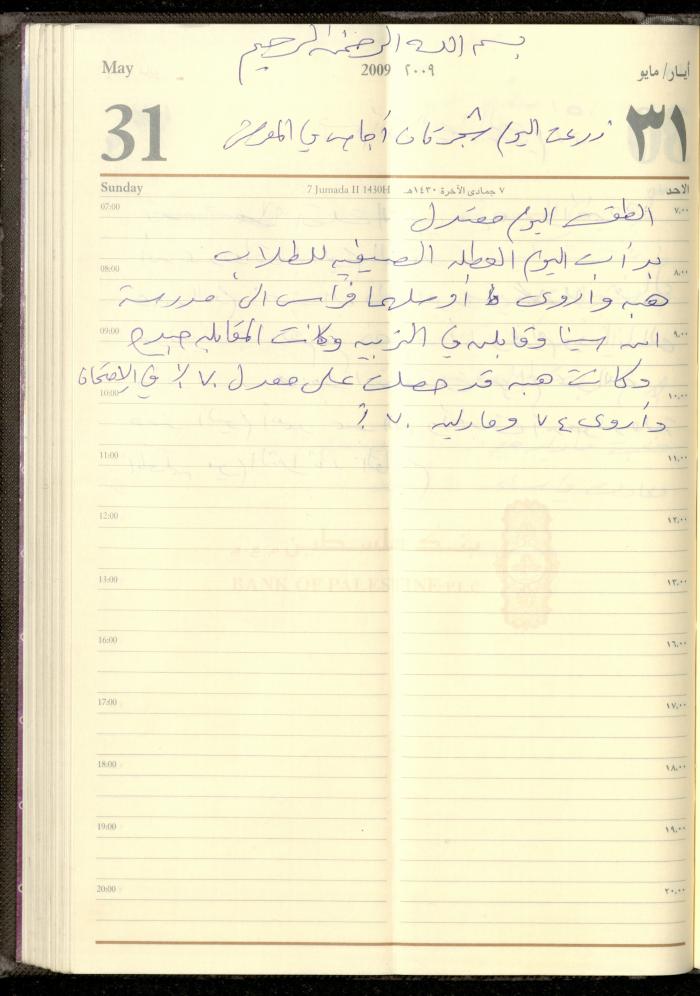 بسم الله الرحمن الرحيم
May 2009 ٢٠٠٩ أيار/ مايو
31 ٣١
زرعت اليوم شجرتان أجاص في المعرش
Sunday 7 Jumada II 1430H ٧ جمادى الآخرة ١٤٣٠هـ الاحد
07:00 ٧,٠٠
الطقس اليوم معتدل
بدأت اليوم العطله الصيفيه للطلاب
08:00 ٨,٠٠
هبه وأروى أوسلهما فراس الى مدرسة
09:00 ٩,٠٠
ابن سينا وقابلن في التربيه وكانت المقابله جيده
وكانت هبه قد حصلت على معدل ٧٠٪ في الامتحان
10:00 ١٠,٠٠
وأروى ٧٤ وماريه ٧٠٪
11:00 ١١,٠٠
12:00 ١٢,٠٠
BANK OF PALESTINE PLC
13:00 ١٣,٠٠
16:00 ١٦,٠٠
17:00 ١٧,٠٠
18:00 ١٨,٠٠
19:00 ١٩,٠٠
20:00 ٢٠,٠٠